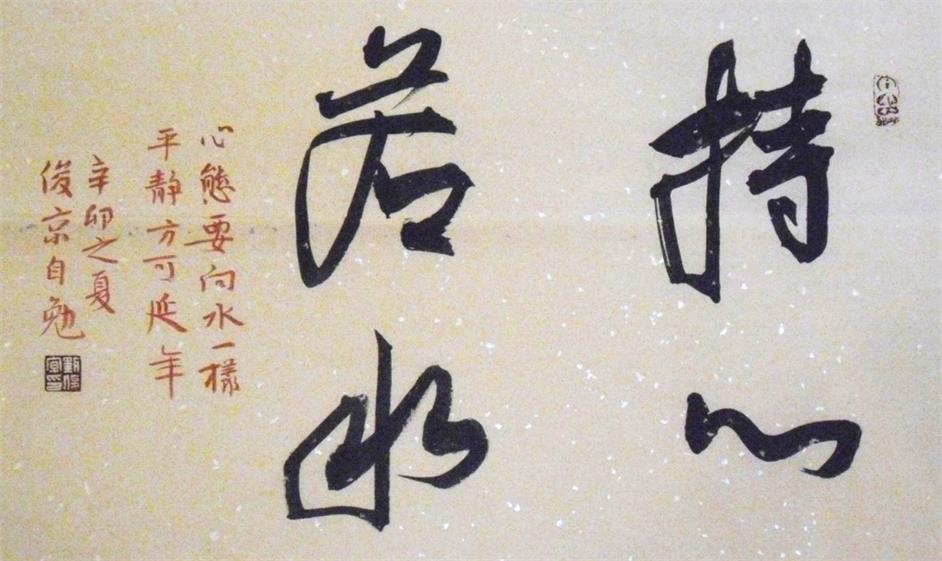 持心
若水
心態要向水一樣
平靜方可延年
辛卯之夏
俊京自勉